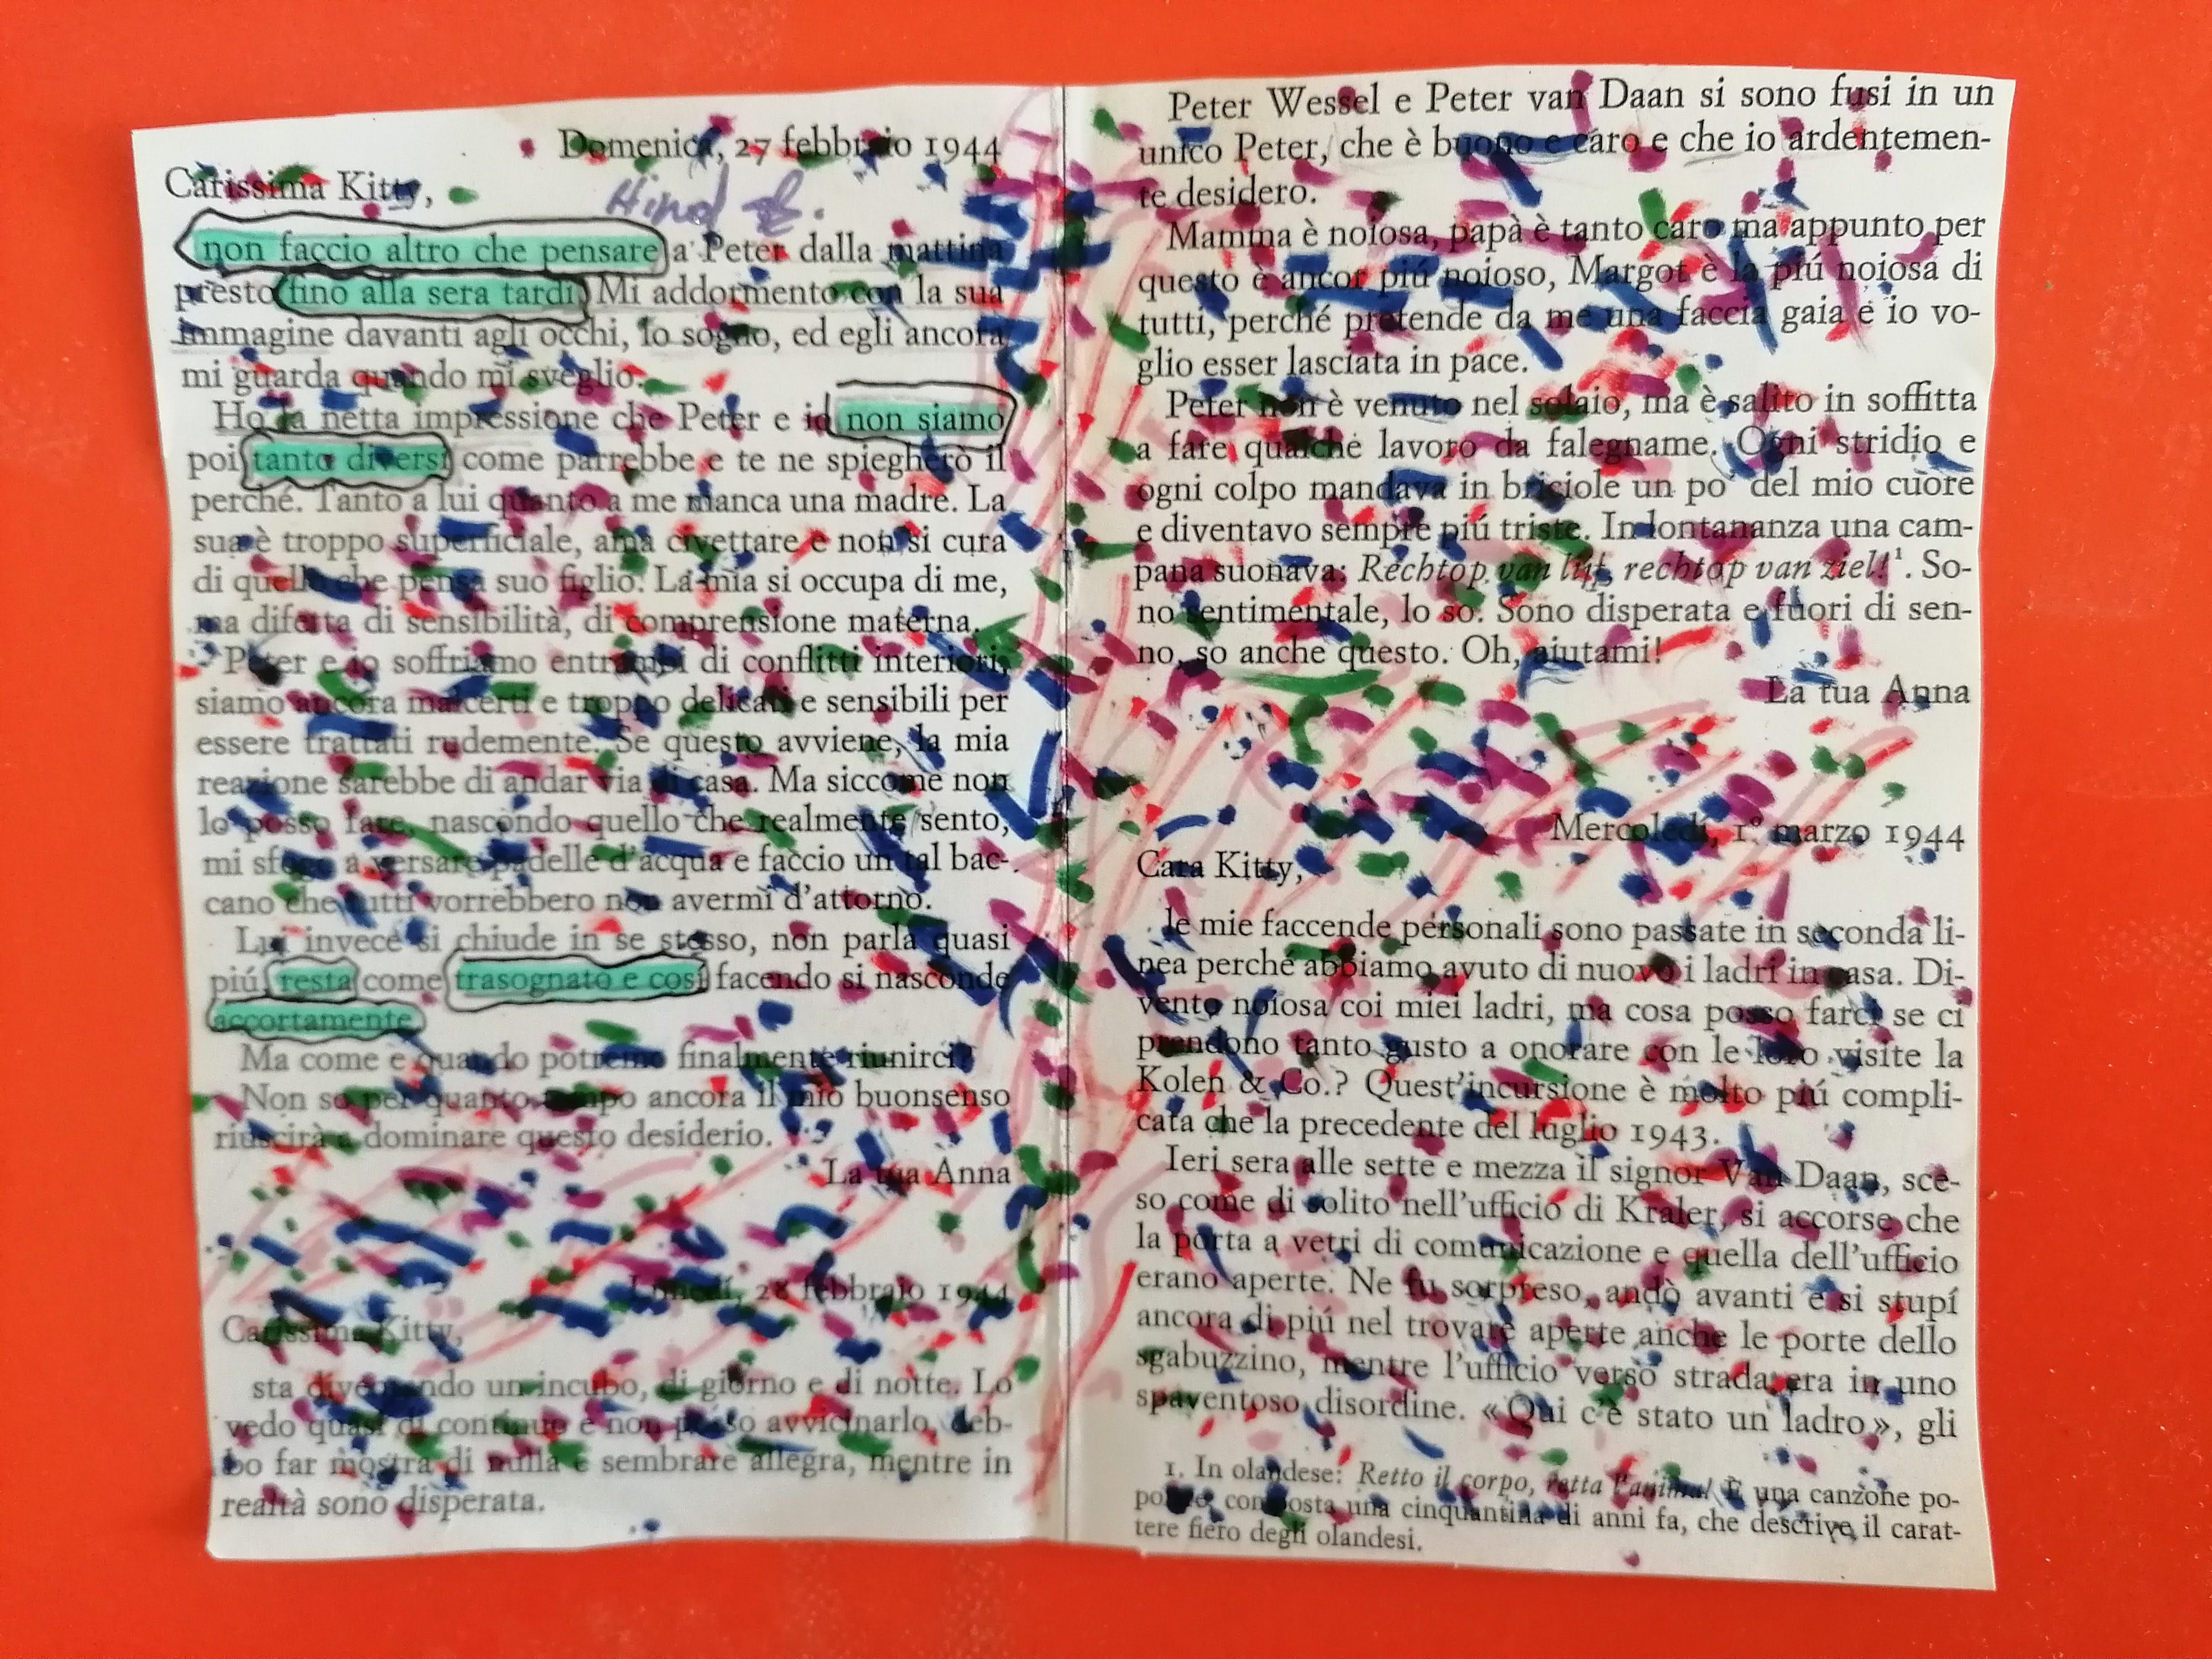 Domenica, 27 febbraio 1944
Carissima Kitty,
Hind
non faccio altro che pensare a Peter dalla mattina
presto fino alla sera tardi. Mi addormento con la sua
immagine davanti agli occhi, lo sogno, ed egli ancora
mi guarda quando mi sveglio.
Ho la netta impressione che Peter e io non siamo
poi tanto diversi come parrebbe e te ne spiegherò il
perché. Tanto a lui quanto a me manca una madre. La
sua è troppo superficiale, ama civettare e non si cura
di quello che pensa suo figlio. La mia si occupa di me,
ma difetta di sensibilità, di comprensione materna.
Peter e io soffriamo entrambi di conflitti interiori,
siamo ancora malcerti e troppo delicati e sensibili per
essere trattati rudemente. Se questo avviene, la mia
reazione sarebbe di andar via di casa. Ma siccome non
lo posso fare, nascondo quello che realmente sento,
mi sfogo a versare padelle d'acqua e faccio un tal bac-
cano che tutti vorrebbero non avermi d'attorno.
Lui invece si chiude in se stesso, non parla quasi
piú, resta come trasognato e cosí facendo si nasconde
accortamente.
Ma come e quando potremo finalmente riunirci?
Non so per quanto tempo ancora il mio buonsenso
riuscirà a dominare questo desiderio.
La tua Anna
Lunedí, 28 febbraio 1944
Carissima Kitty,
sta divenendo un incubo, di giorno e di notte. Lo
vedo quasi di continuo e non posso avvicinarlo, deb-
bo far mostra di nulla e sembrare allegra, mentre in
realtà sono disperata.
Peter Wessel e Peter van Daan si sono fusi in un
unico Peter, che è buono e caro e che io ardentemen-
te desidero.
Mamma è noiosa, papà è tanto caro ma appunto per
questo è ancor piú noioso, Margot è la piú noiosa di
tutti, perché pretende da me una faccia gaia e io vo-
glio esser lasciata in pace.
Peter non è venuto nel solaio, ma è salito in soffitta
a fare qualche lavoro da falegname. Ogni stridio e
ogni colpo mandava in briciole un po' del mio cuore
e diventavo sempre piú triste. In lontananza una cam-
pana suonava: Rechtop van lijf, rechtop van ziel!¹. So-
no sentimentale, lo so. Sono disperata e fuori di sen-
no, so anche questo. Oh, aiutami!
La tua Anna
Mercoledí, 1° marzo 1944
Cara Kitty,
le mie faccende personali sono passate in seconda li-
nea perché abbiamo avuto di nuovo i ladri in casa. Di-
vento noiosa coi miei ladri, ma cosa posso farci se ci
prendono tanto gusto a onorare con le loro visite la
Kolen & Co.? Quest'incursione è molto piú compli-
cata che la precedente del luglio 1943.
Ieri sera alle sette e mezza il signor Van Daan, sce-
so come di solito nell'ufficio di Kraler, si accorse che
la porta a vetri di comunicazione e quella dell'ufficio
erano aperte. Ne fu sorpreso, andò avanti e si stupí
ancora di piú nel trovare aperte anche le porte dello
sgabuzzino, mentre l'ufficio verso strada era in uno
spaventoso disordine. «Qui c'è stato un ladro», gli
1. In olandese: Retto il corpo, retta l'anima! È una canzone po-
polare composta una cinquantina di anni fa, che descrive il carat-
tere fiero degli olandesi.